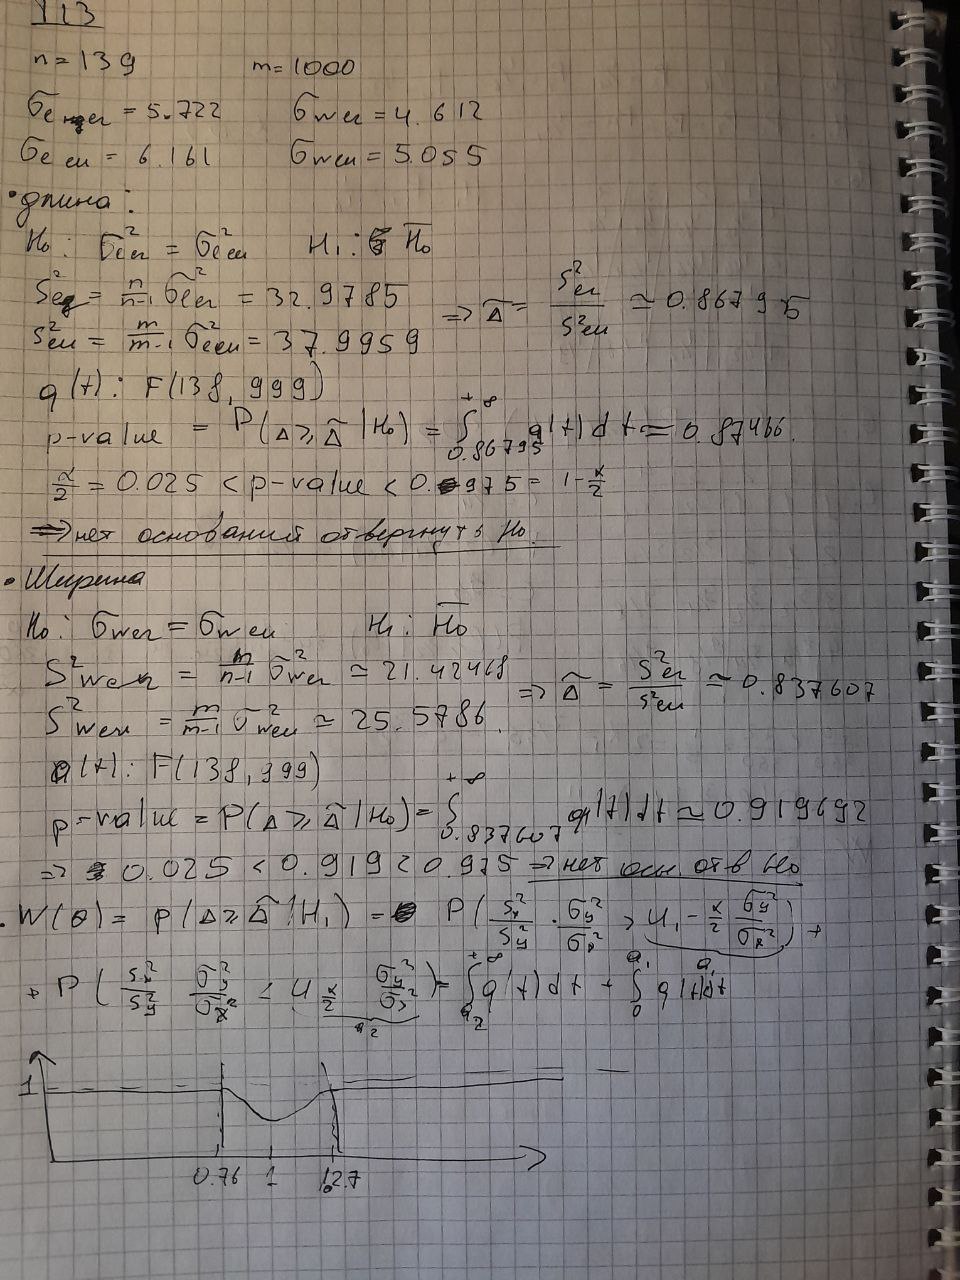 №13
n = 139 m = 1000
σ̃ℓ er = 5.722 σ̃w er = 4.612
σ̃ℓ eu = 6.161 σ̃w eu = 5.055
• длина:
H₀: σ̃²ℓer = σ̃²ℓeu H₁: H̄₀
S²ℓ = n/n-1 σ̃²ℓer = 32.9785
⇒ Δ̃ = S²er/S²eu ≃ 0.86795
S²ℓeu = m/m-1 σ̃²ℓeu = 37.9959
q(t): F(138, 999)
p-value = P(Δ ≥ Δ̃ | H₀) = ∫₀.₈₆₇₉₅^+∞ q(t)dt ≃ 0.87466.
α/2 = 0.025 < p-value < 0.975 = 1-α/2
⇒ нет оснований отвергнуть H₀.
• Ширина
H₀: σwer = σweu H₁: H̄₀
S²wer = m/n-1 σ̃²wer ≃ 21.42468
⇒ Δ̃ = S²er/S²eu ≃ 0.837607
S²weu = m/m-1 σ²weu ≃ 25.5786.
q(t): F(138, 999)
p-value = P(Δ ≥ Δ̃ | H₀) = ∫₀.₈₃₇₆₀₇^+∞ q(t)dt ≃ 0.919692
⇒ 0.025 < 0.919 < 0.975 ⇒ нет осн отв H₀
• W(θ) = p(Δ ≥ Δ̃ | H₁) = P( Sx²/Sy² · σy²/σx² > U1-α/2 σy²/σx² ) +
+ P( Sx²/Sy² σy²/σx² ≤ Uα/2 σy²/σx² ) = ∫a₂^+∞ q(t)dt + ∫₀^a₁ q(t)dt
1
0.76 1 12.7